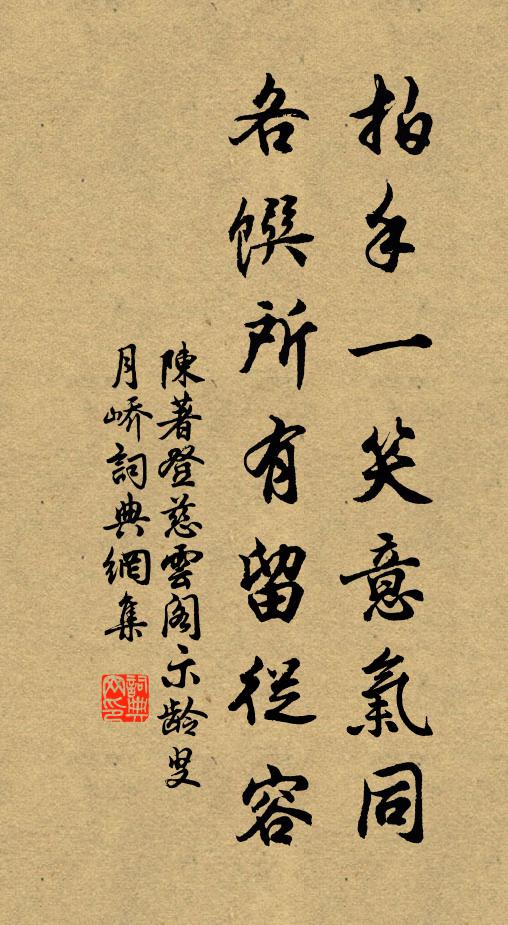 拍手一笑意氣同
各馔所有留從容
陳著登慈雲閣示龄叟
月峤詞典網集
詞典网印